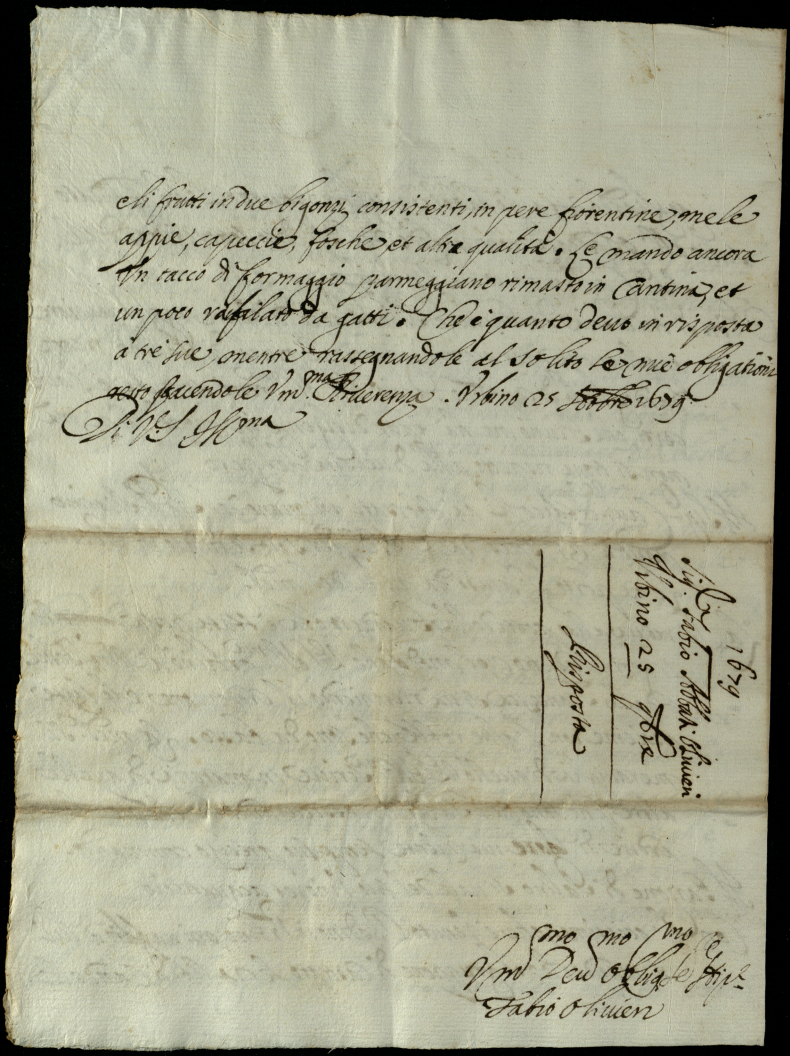 e li frutti in due bigonzi consistenti, in pere fiorentine, mele
appie, capeccie, fosche, et altra qualità. Le mando ancora
un sacco di formaggio parmeggiano rimasto in Cantina, et
un poco rafilato da gatti. Che è quanto devo in risposta
à tre sue, mentre rassegnandole al solito le mie obligationi
resto facendole Um.ma Riverenza. Urbino 25 1679
Di V.S. Ill.ma
1679
Sig. Fabio Abbati Olivieri
Urbino 25 9bre
Risposta
Um.mo Dev.mo Oblig.mo Se
Fabio Olivieri